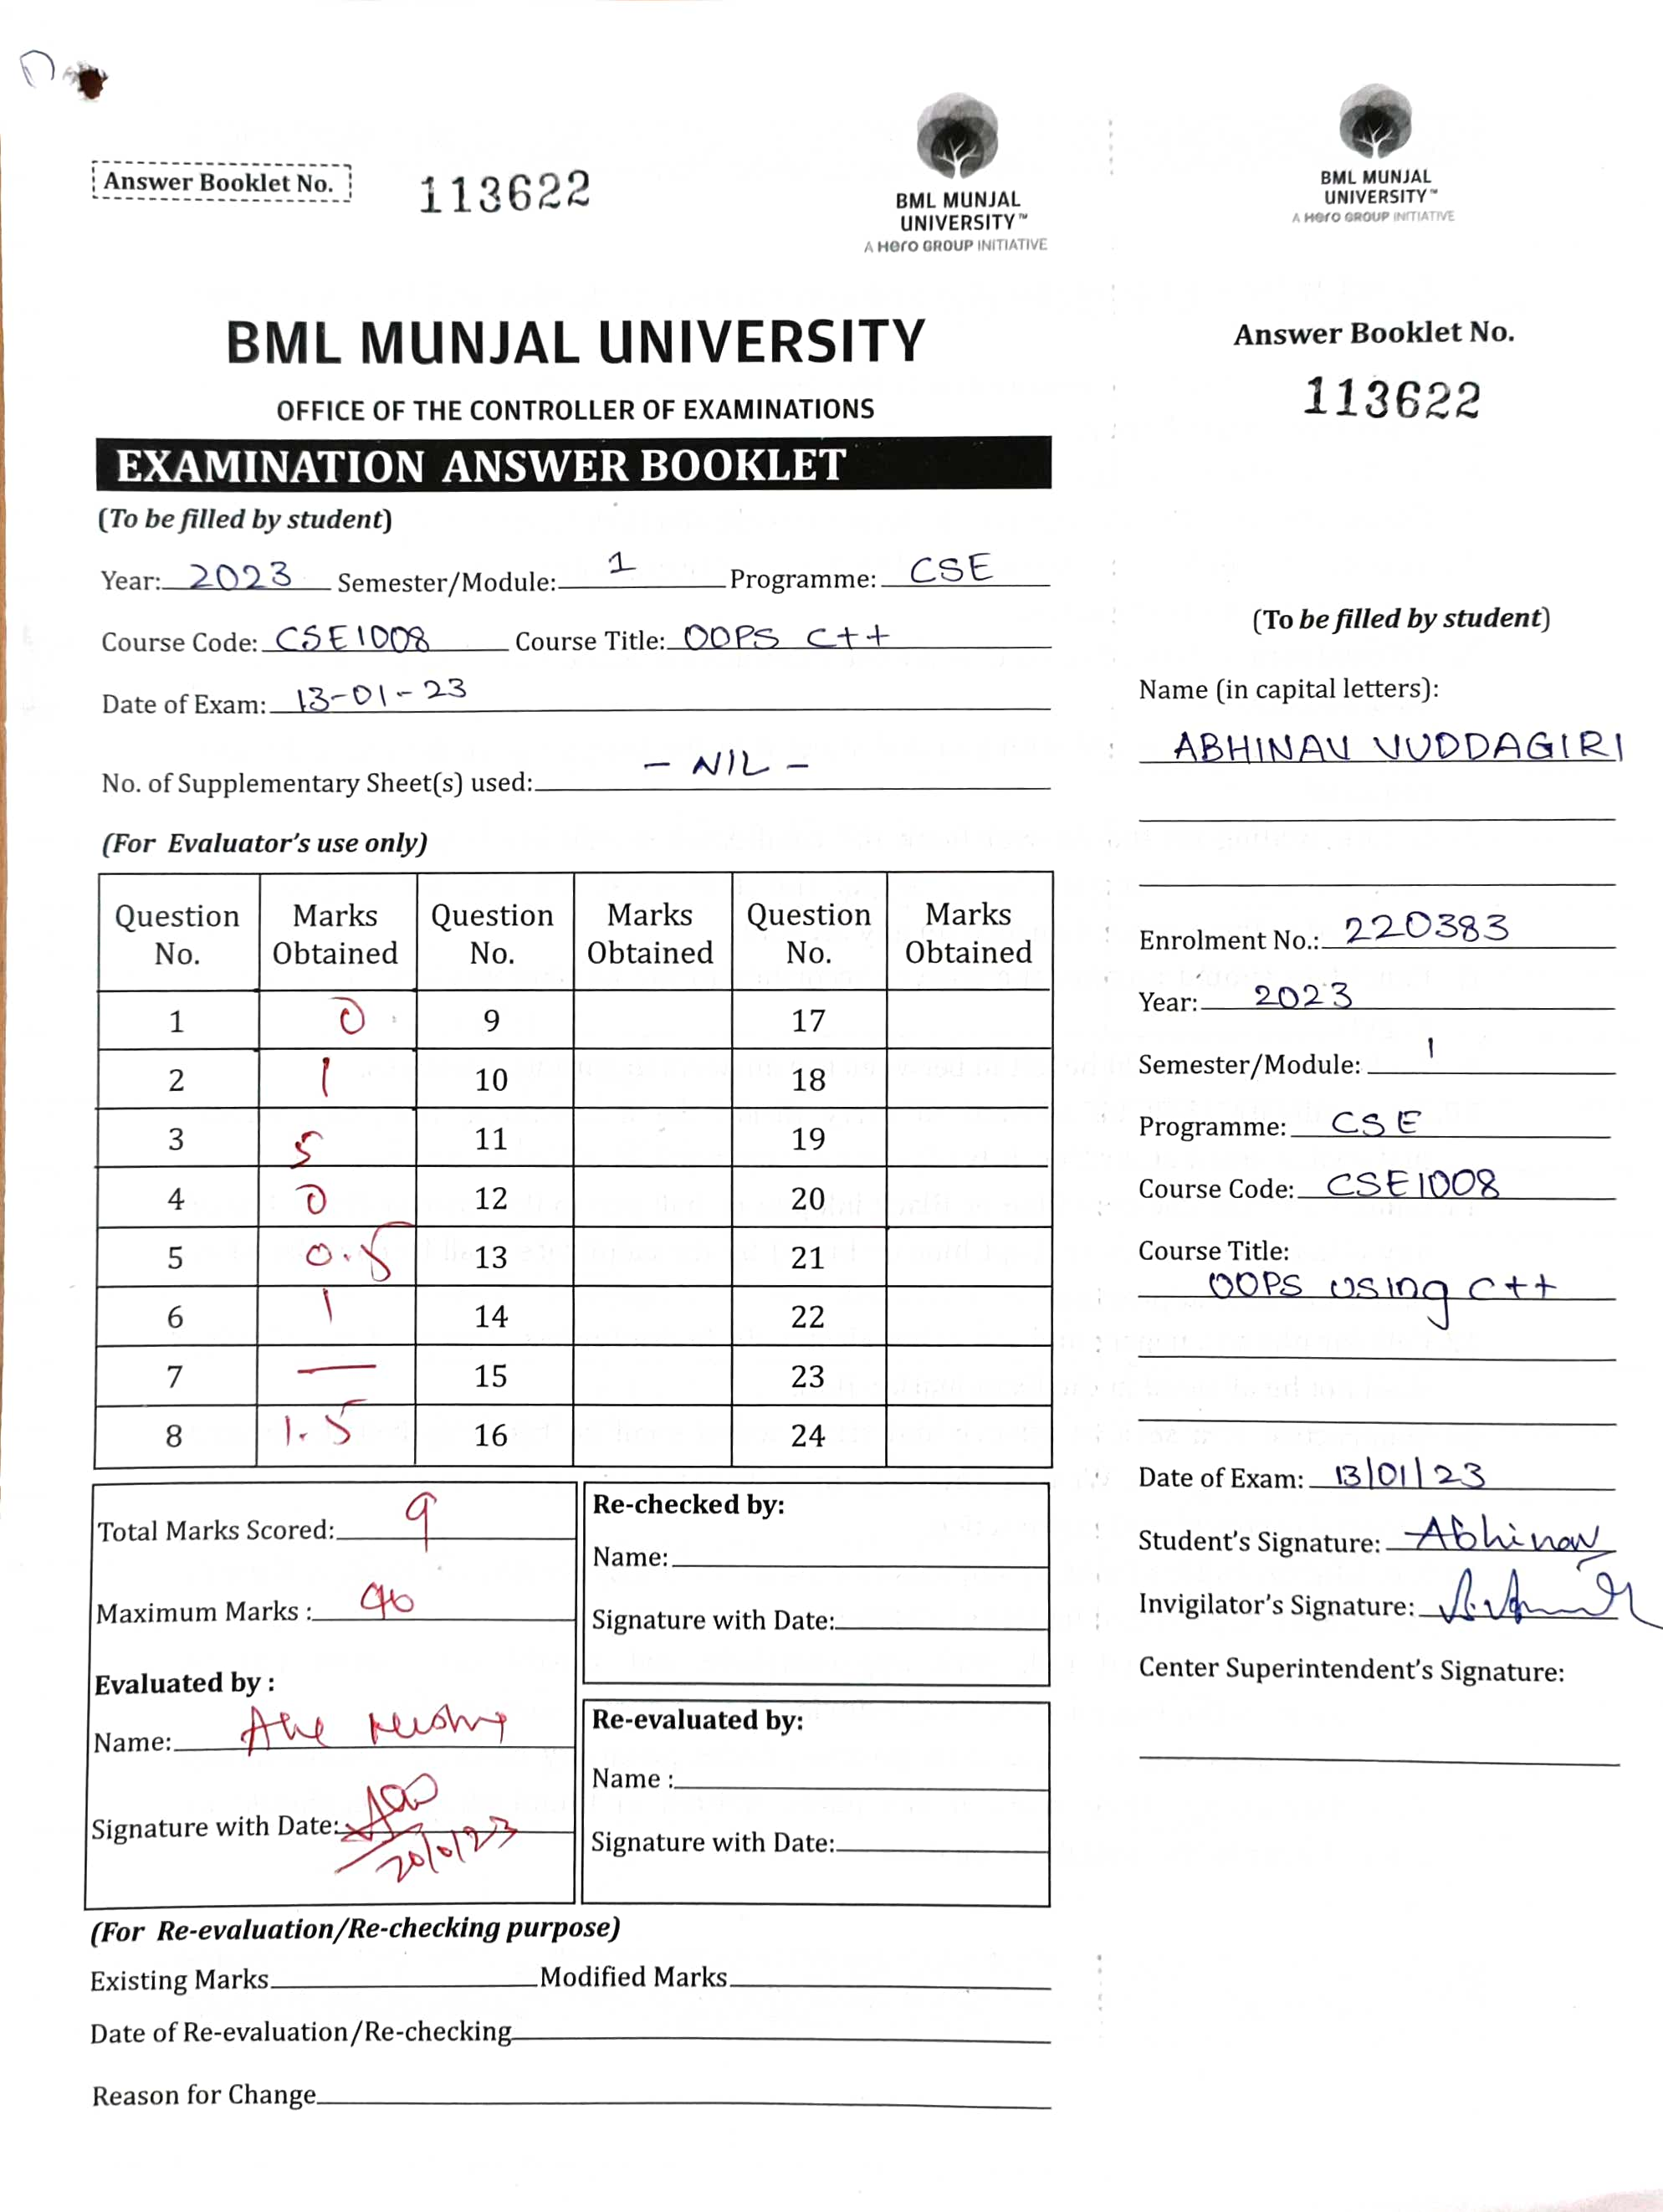 Answer Booklet No. 113622
BML MUNJAL
UNIVERSITY™
A Hero GROUP INITIATIVE
BML MUNJAL UNIVERSITY
OFFICE OF THE CONTROLLER OF EXAMINATIONS
EXAMINATION ANSWER BOOKLET
(To be filled by student)
Year: 2023 Semester/Module: 1 Programme: CSE
Course Code: CSE1008 Course Title: OOPS C++
Date of Exam: 13-01-23
No. of Supplementary Sheet(s) used: - NIL -
(For Evaluator's use only)
Question No. Marks Obtained Question No. Marks Obtained Question No. Marks Obtained
1 0 9 17
2 1 10 18
3 5 11 19
4 0 12 20
5 0.5 13 21
6 1 14 22
7 — 15 23
8 1.5 16 24
Total Marks Scored: 9
Maximum Marks : 40
Evaluated by :
Name:
Signature with Date: 20/1/23
Re-checked by:
Name:
Signature with Date:
Re-evaluated by:
Name :
Signature with Date:
(For Re-evaluation/Re-checking purpose)
Existing Marks Modified Marks
Date of Re-evaluation/Re-checking
Reason for Change
BML MUNJAL
UNIVERSITY™
A Hero GROUP INITIATIVE
Answer Booklet No.
113622
(To be filled by student)
Name (in capital letters):
ABHINAV VUDDAGIRI
Enrolment No.: 220383
Year: 2023
Semester/Module: 1
Programme: CSE
Course Code: CSE1008
Course Title:
OOPS using C++
Date of Exam: 13/01/23
Student's Signature: Abhinav
Invigilator's Signature:
Center Superintendent's Signature: